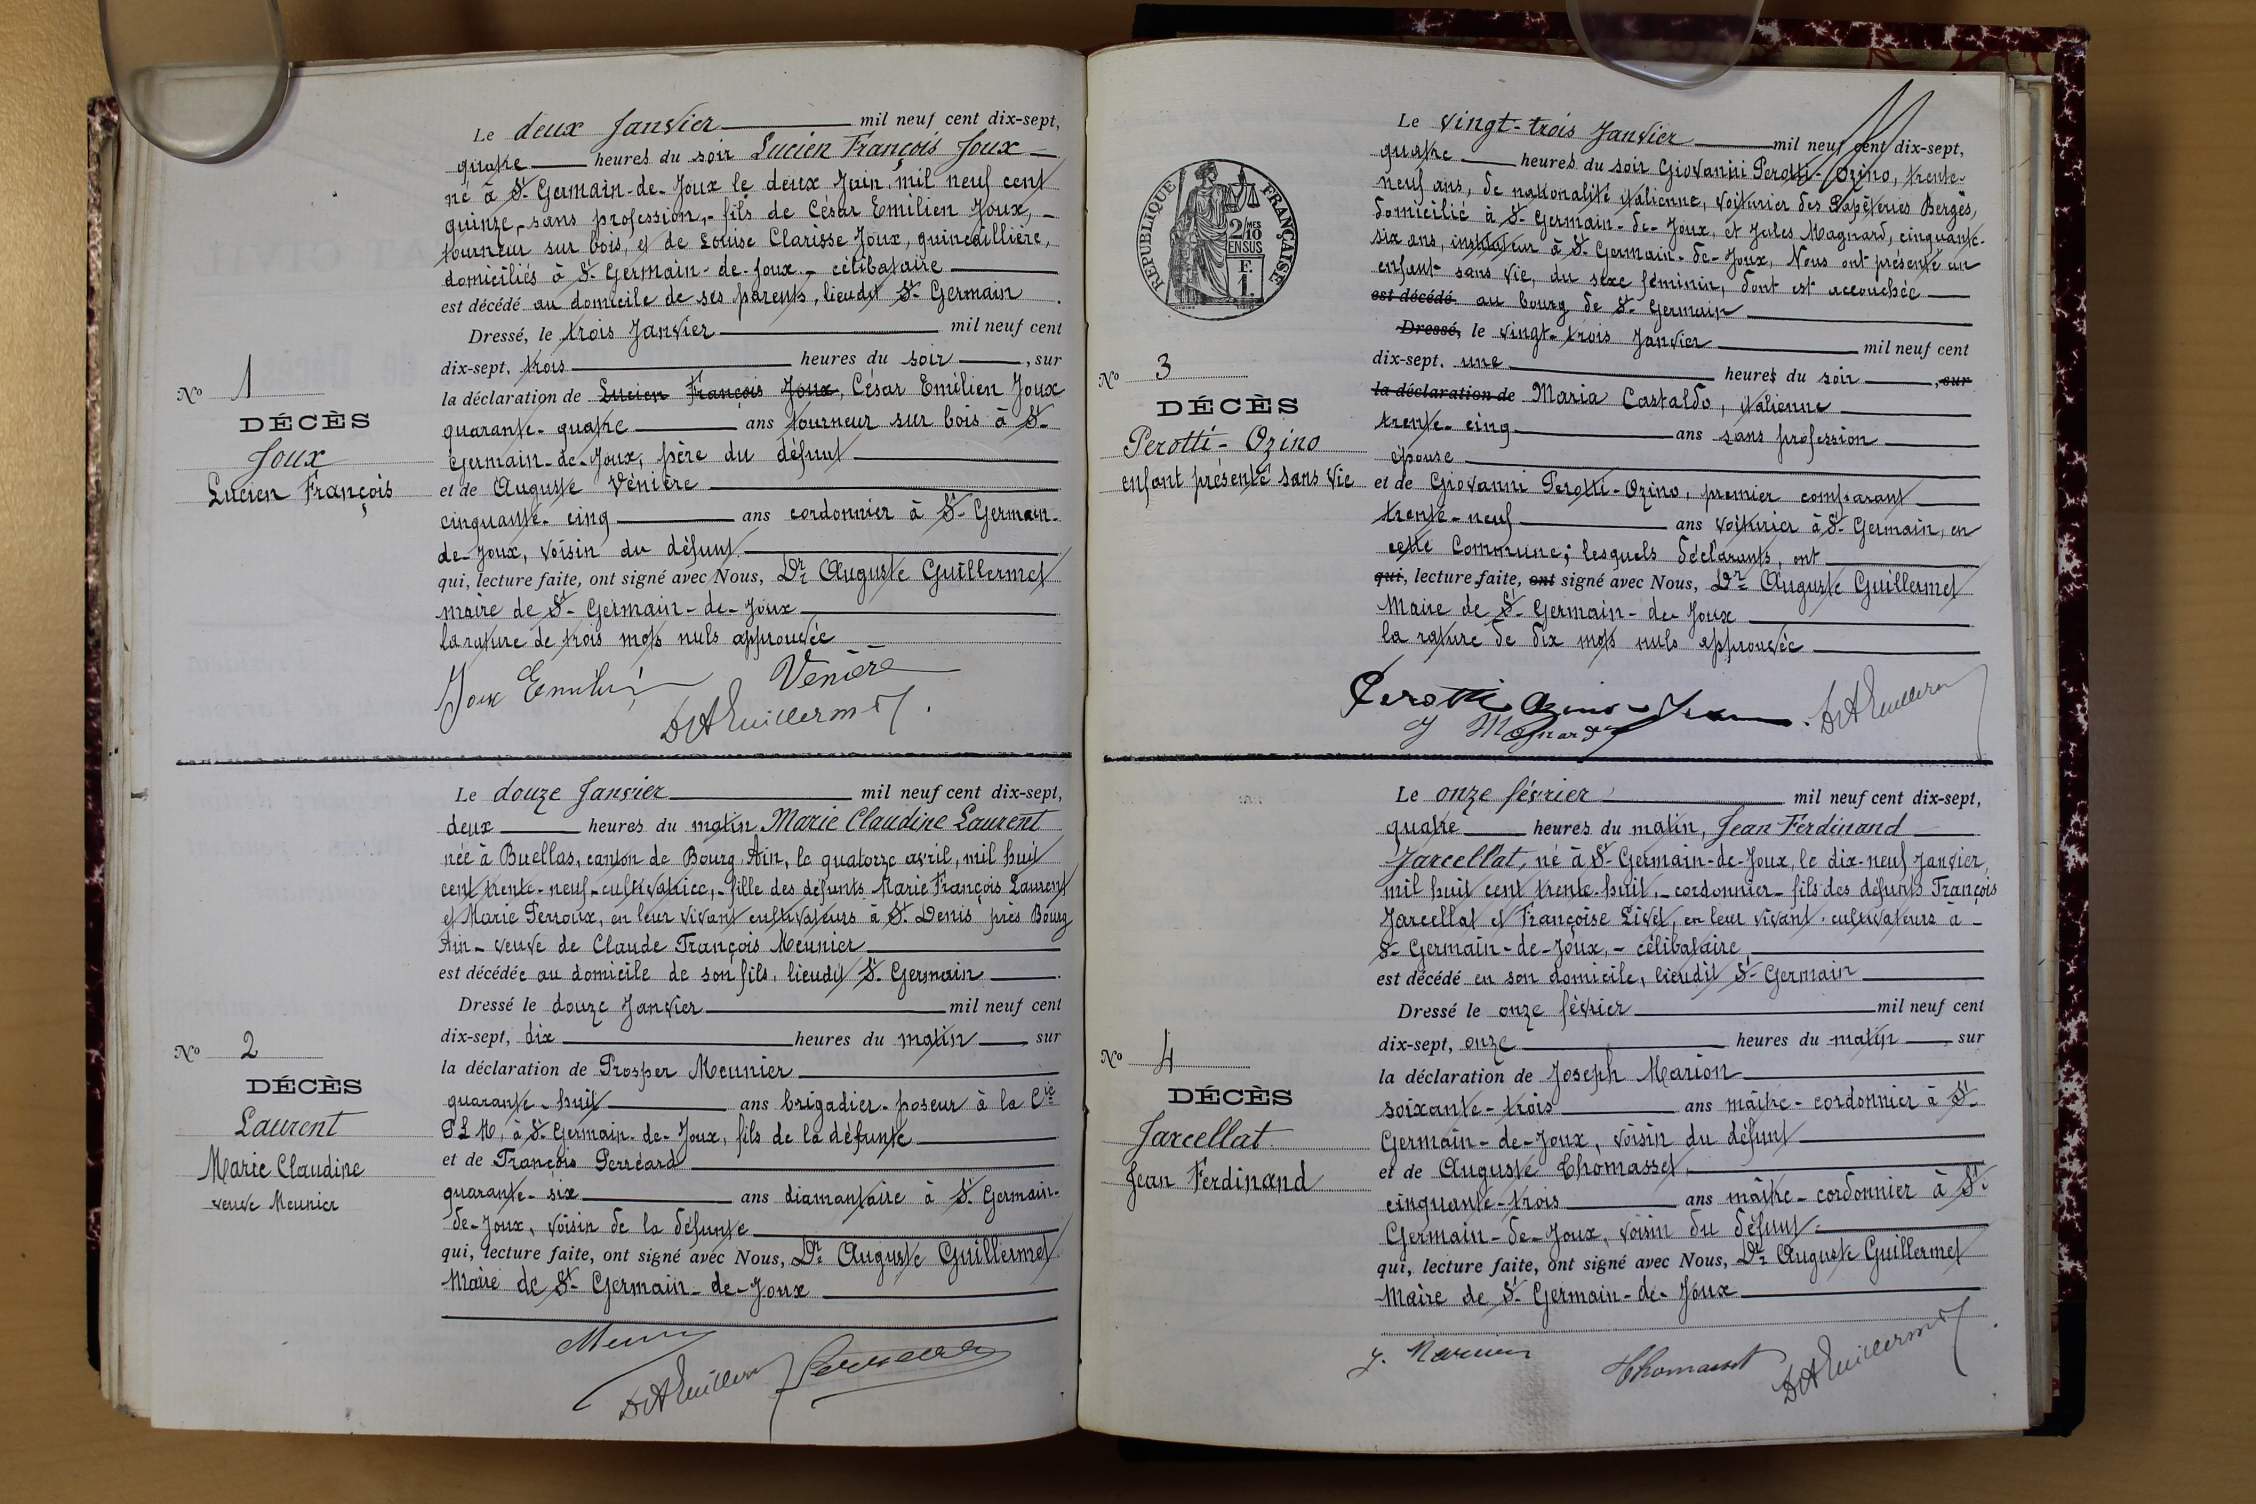 Le deux Janvier mil neuf cent dix-sept,
quatre heures du soir Lucien François Joux
né à St Germain-de-Joux le deux Juin, mil neuf cent
quinze, sans profession, - fils de César Emilien Joux, -
tourneur sur bois, et de Louise Clarisse Joux, quincaillière,
domiciliés à St Germain-de-Joux - célibataire
est décédé au domicile de ses parents, lieudit St Germain
Dressé, le trois Janvier mil neuf cent
dix-sept, trois heures du soir, sur
la déclaration de Lucien François Joux, César Emilien Joux
quarante-quatre ans tourneur sur bois à St
Germain-de-Joux, père du défunt
et de Auguste Vénière
cinquante-cinq ans cordonnier à St Germain-
de-Joux, voisin du défunt
qui, lecture faite, ont signé avec Nous, Dr Auguste Guillermet
maire de St Germain-de-Joux
la rature de trois mots nuls approuvée
Joux Emilien Vénière
Dr A Guillermet
No 1
DÉCÈS
Joux
Lucien François
Le douze Janvier mil neuf cent dix-sept,
deux heures du matin Marie Claudine Laurent
née à Buellas, canton de Bourg, Ain, le quatorze avril, mil huit
cent trente-neuf - cultivatrice, - fille des défunts Marie François Laurent
et Marie Perroux, en leur vivant cultivateurs à St Denis près Bourg
Ain - veuve de Claude François Meunier
est décédée au domicile de son fils, lieudit St Germain
Dressé le douze Janvier mil neuf cent
dix-sept, dix heures du matin, sur
la déclaration de Prosper Meunier
quarante-huit ans brigadier-poseur à la Cie
P L M, à St Germain-de-Joux, fils de la défunte
et de François Perréard
quarante-six ans diamantaire à St Germain-
de-Joux, voisin de la défunte
qui, lecture faite, ont signé avec Nous, Dr Auguste Guillermet
Maire de St Germain-de-Joux
Dr A Guillermet
No 2
DÉCÈS
Laurent
Marie Claudine
veuve Meunier
Le vingt-trois Janvier mil neuf cent dix-sept,
quatre heures du soir Giovanni Perotti-Ozino, trente-
neuf ans, de nationalité italienne, voiturier des Papèteries Bergès,
domicilié à St Germain-de-Joux, et Jules Magnard, cinquante-
six ans, instituteur à St Germain-de-Joux, Nous ont présenté un
enfant sans vie, du sexe féminin, dont est accouchée
est décédé au bourg de St Germain
Dressé, le vingt-trois Janvier mil neuf cent
dix-sept, une heures du soir, sur
la déclaration de Maria Castaldo, italienne
trente-cinq ans sans profession
épouse
et de Giovanni Perotti-Ozino, premier comparant
trente-neuf ans voiturier à St Germain, en
cette Commune; lesquels déclarants, ont
qui, lecture faite, ont signé avec Nous, Dr Auguste Guillermet
Maire de St Germain-de-Joux
la rature de dix mots nuls approuvée
Perotti Ozino Jean Dr A Guillermet
J Magnard
RÉPUBLIQUE FRANÇAISE
2/10MES
EN SUS
F.
1.
No 3
DÉCÈS
Perotti-Ozino
enfant présenté sans vie
Le onze février mil neuf cent dix-sept,
quatre heures du matin, Jean Ferdinand
Jarcellat, né à St Germain-de-Joux, le dix-neuf Janvier,
mil huit cent trente-huit, - cordonnier - fils des défunts François
Jarcellat et Françoise Livet, en leur vivant cultivateurs à -
St Germain-de-Joux, - célibataire,
est décédé en son domicile, lieudit St Germain
Dressé le onze février mil neuf cent
dix-sept, onze heures du matin, sur
la déclaration de Joseph Marion
soixante-trois ans maître-cordonnier à St
Germain-de-Joux, voisin du défunt
et de Auguste Thomasset,
cinquante-trois ans maître-cordonnier à St
Germain-de-Joux, voisin du défunt
qui, lecture faite, ont signé avec Nous, Dr Auguste Guillermet
Maire de St Germain-de-Joux
J. Marion Thomasset Dr A Guillermet
No 4
DÉCÈS
Jarcellat
Jean Ferdinand